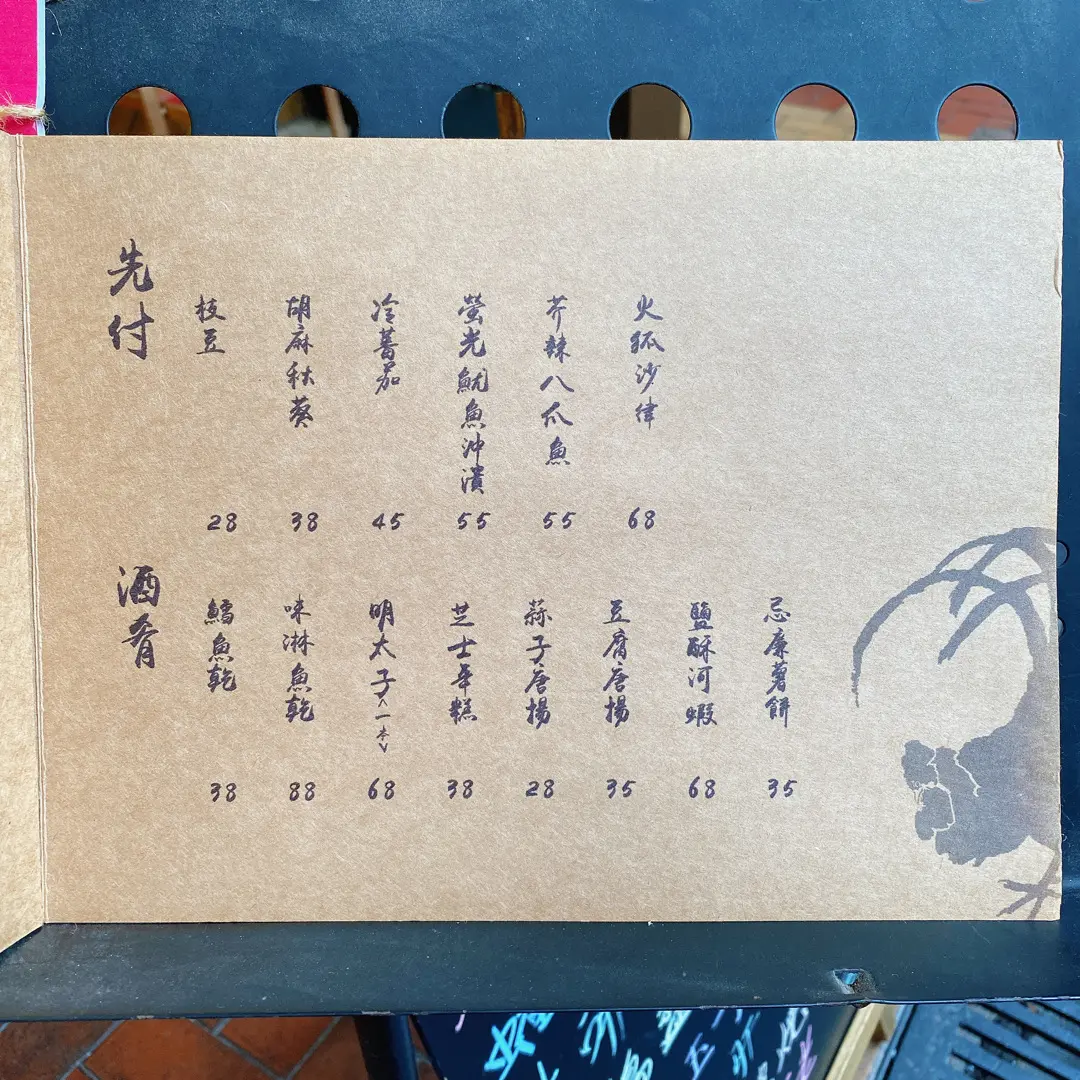 先付
枝豆
28
胡麻秋葵
38
冷蕃茄
45
螢光魷魚沖漬
55
芥辣八爪魚
55
火狐沙律
68
酒肴
鱈魚乾
38
味淋魚乾
88
明太子<一本>
68
芝士年糕
38
蒜子唐揚
28
豆腐唐揚
35
鹽酥河蝦
68
忌廉薯餅
35